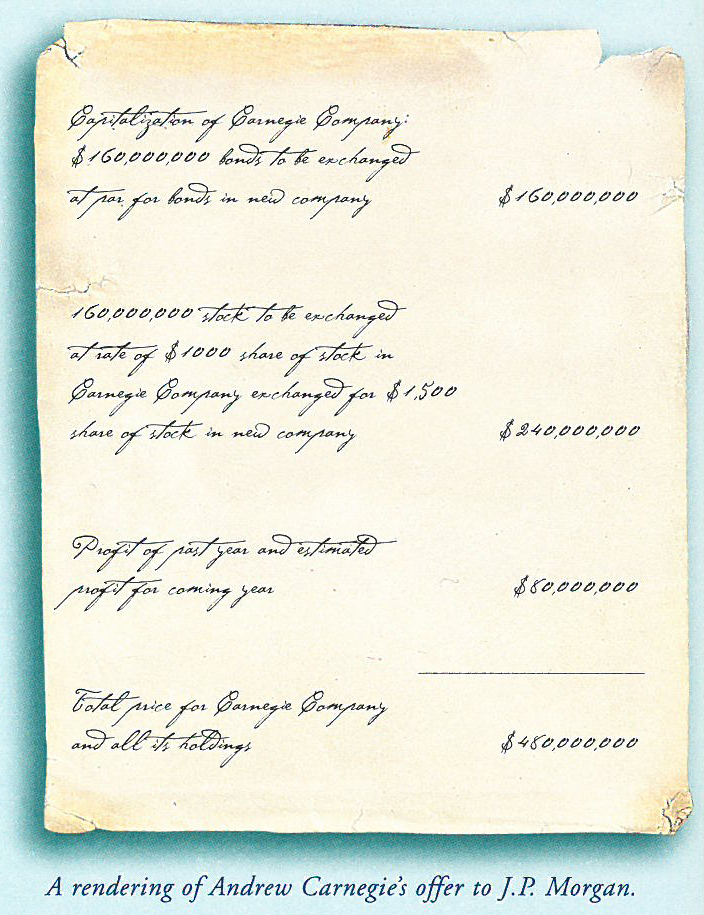 Capitalization of Carnegie Company:
$160,000,000 bonds to be exchanged
at par for bonds in new company $160,000,000
160,000,000 stock to be exchanged
at rate of $1000 share of stock in
Carnegie Company exchanged for $1,500
share of stock in new company $240,000,000
Profit of past year and estimated
profit for coming year $80,000,000
Total price for Carnegie Company
and all its holdings $480,000,000
A rendering of Andrew Carnegie's offer to J.P. Morgan.